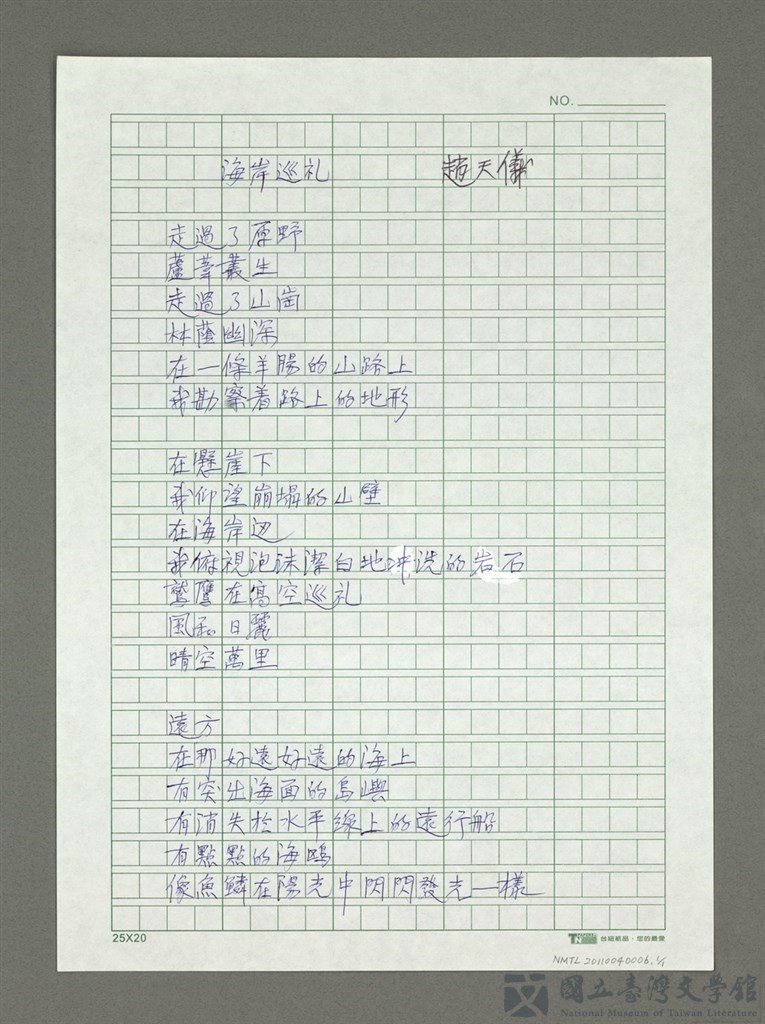 NO.
海岸巡礼 趙天儀
走過了原野
蘆葦叢生
走過了山崗
林蔭幽深
在一條羊腸的山路上
我勘察着路上的地形
在懸崖下
我仰望崩塌的山壁
在海岸边
我俯視泡沫潔白地冲洗的岩石
鷲鷹在高空巡礼
風和日麗
晴空萬里
遠方
在那好遠好遠的海上
有突出海面的島嶼
有消失於水平線上的遠行船
有點點的海鷗
像魚鱗在陽光中閃閃發光一樣
25X20
台紐紙品・您的最愛
NMTL 20110040006, 1/1
國立臺灣文學館
National Museum of Taiwan Literature